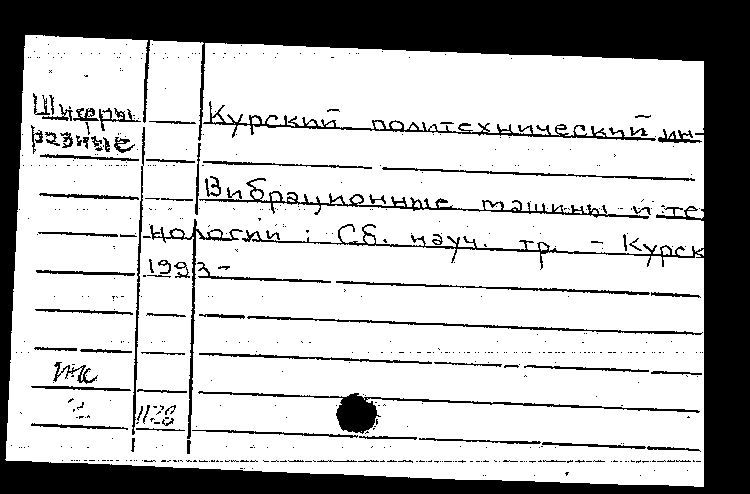 Шифры
разные
Курский политехнический ин-
Вибрационные машины и те
нологии : Сб. науч. тр. - Курск
1993 -
1128